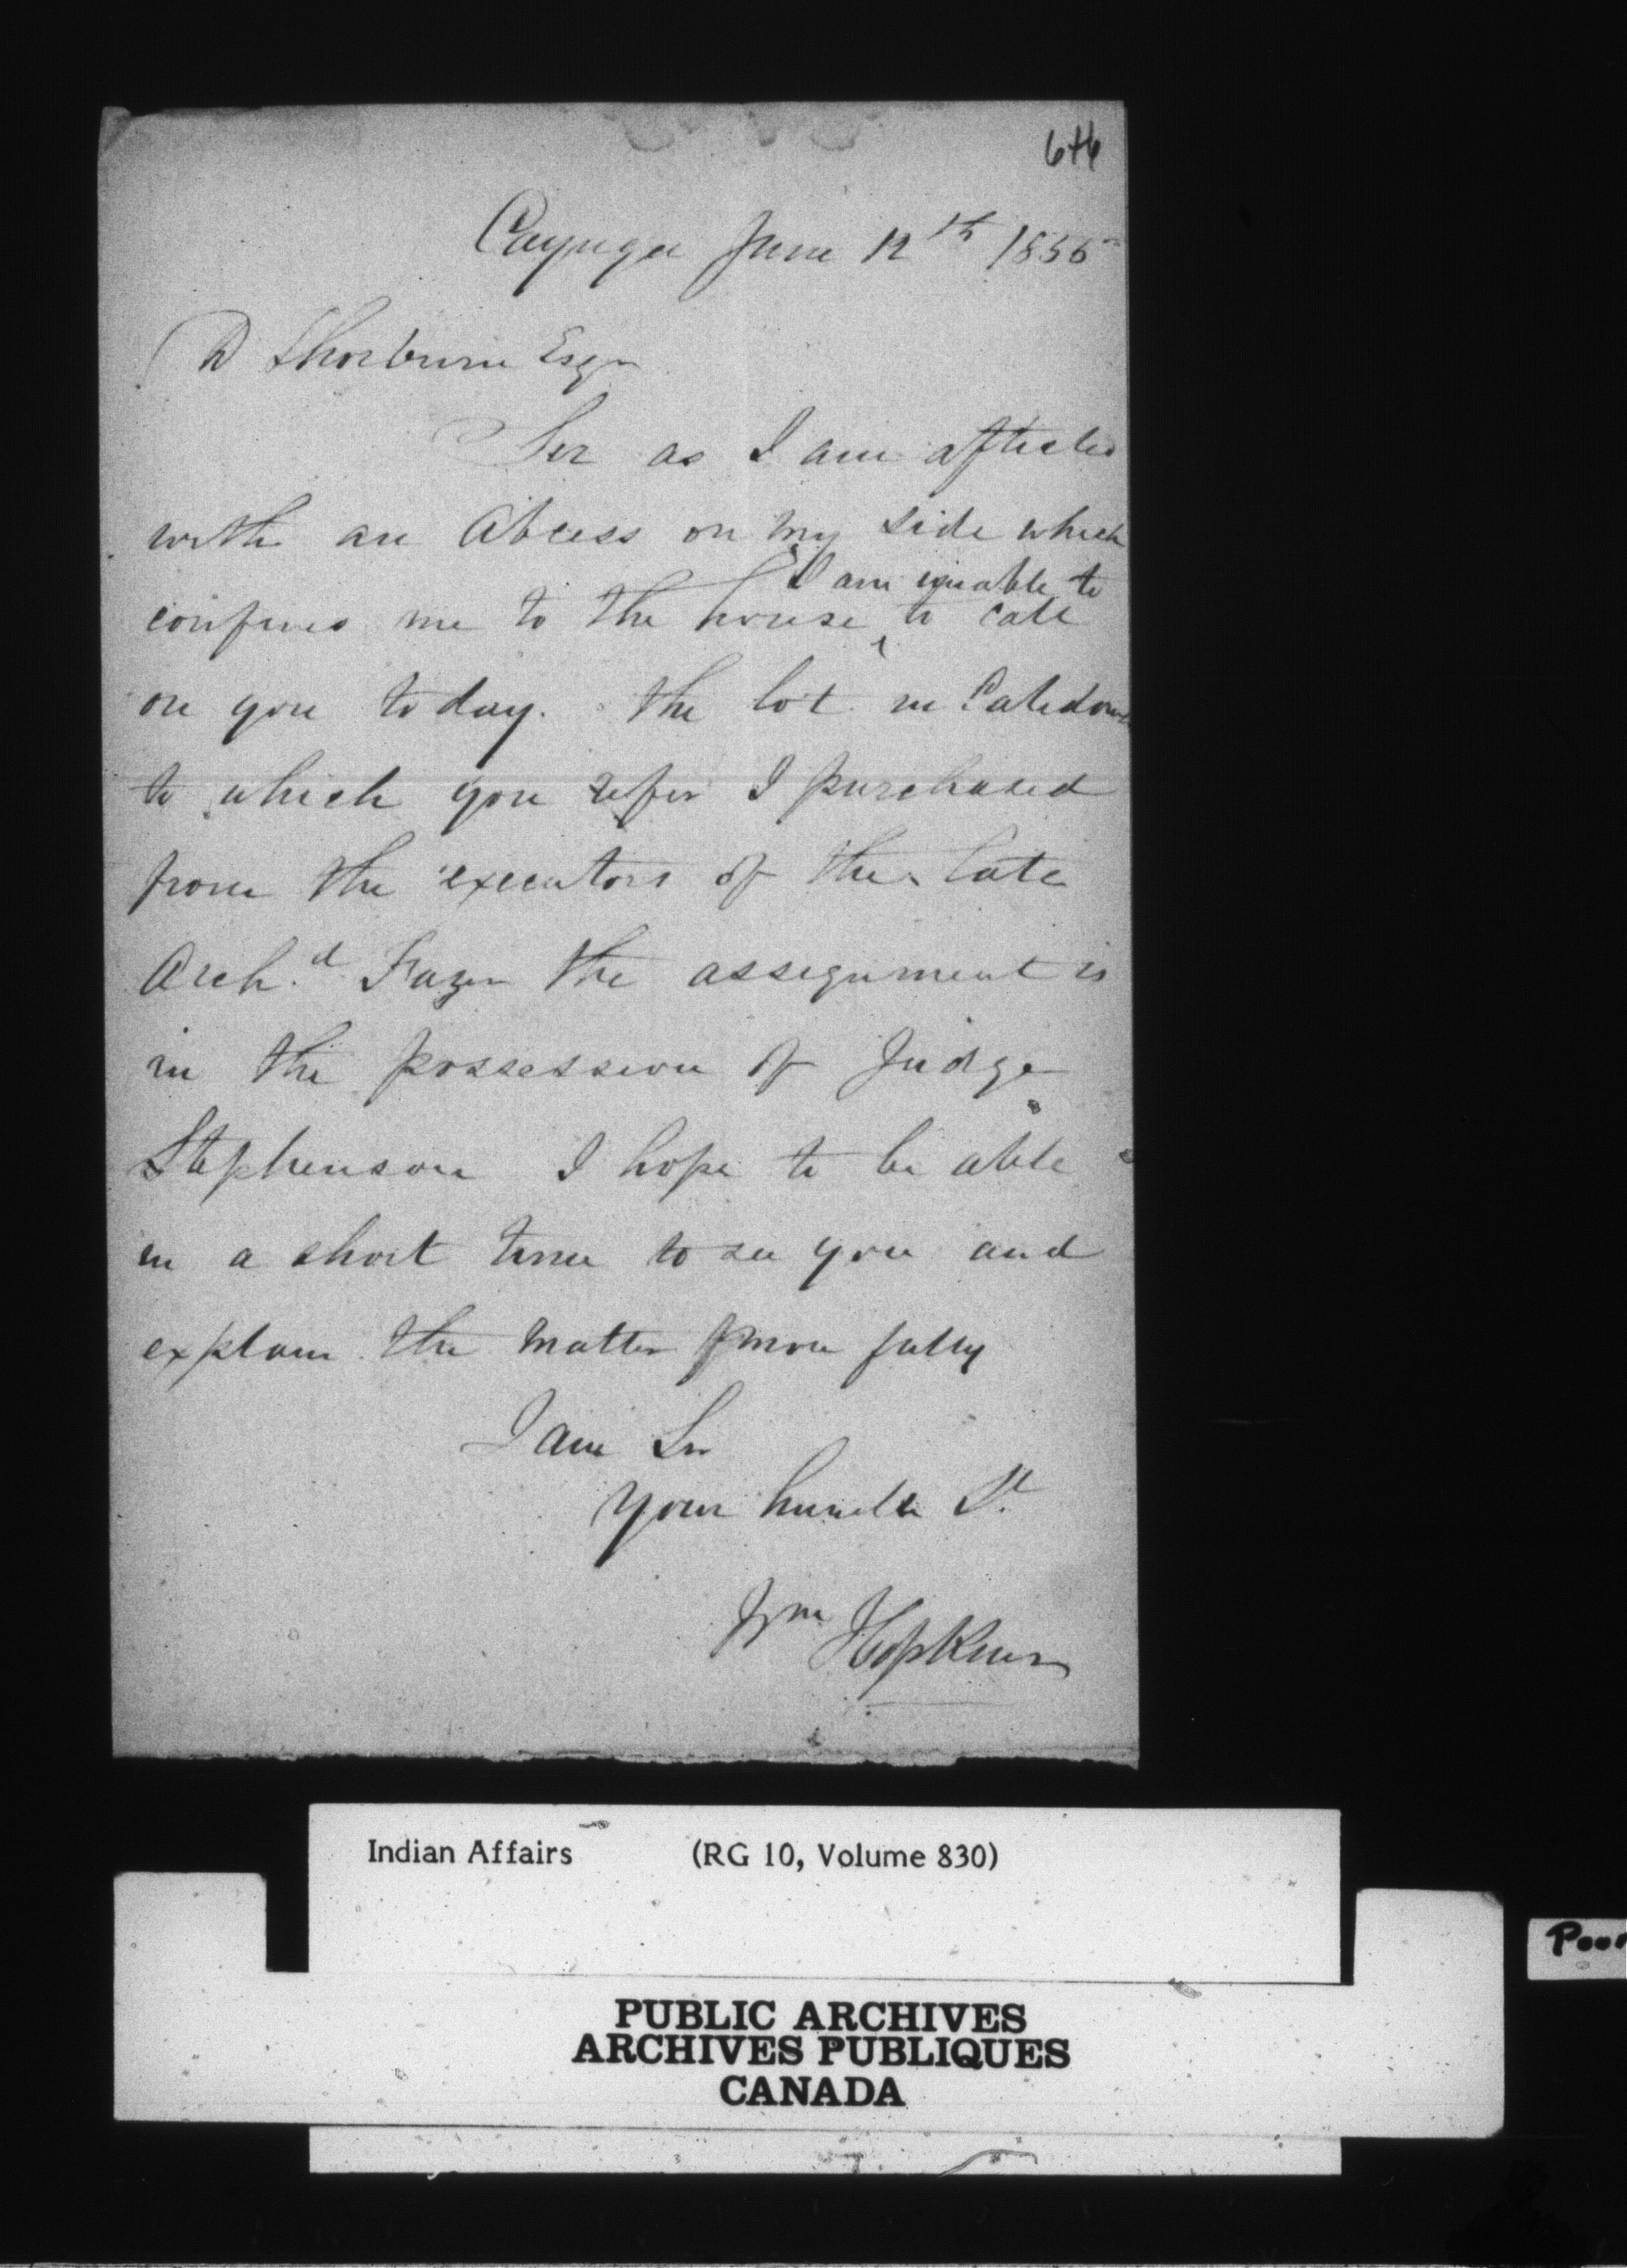 Cayuga June 12th 1855
D Thorburn Esqr
Sir as I am aflicted
with an Abcess on my side which
I am unable to
confines me to the house to call
on you to day. the lot in Caledonia
to which you refer I purchased
from the executors of the late
Archd. Frazer the assignment is
in the possession of Judge
Stephenson I hope to be able
in a short time to see you and
explain the matter more fully
I am Sir
Your humble St.
Wm Hopkins
Indian Affairs (RG 10, Volume 830)
PUBLIC ARCHIVES
ARCHIVES PUBLIQUES
CANADA